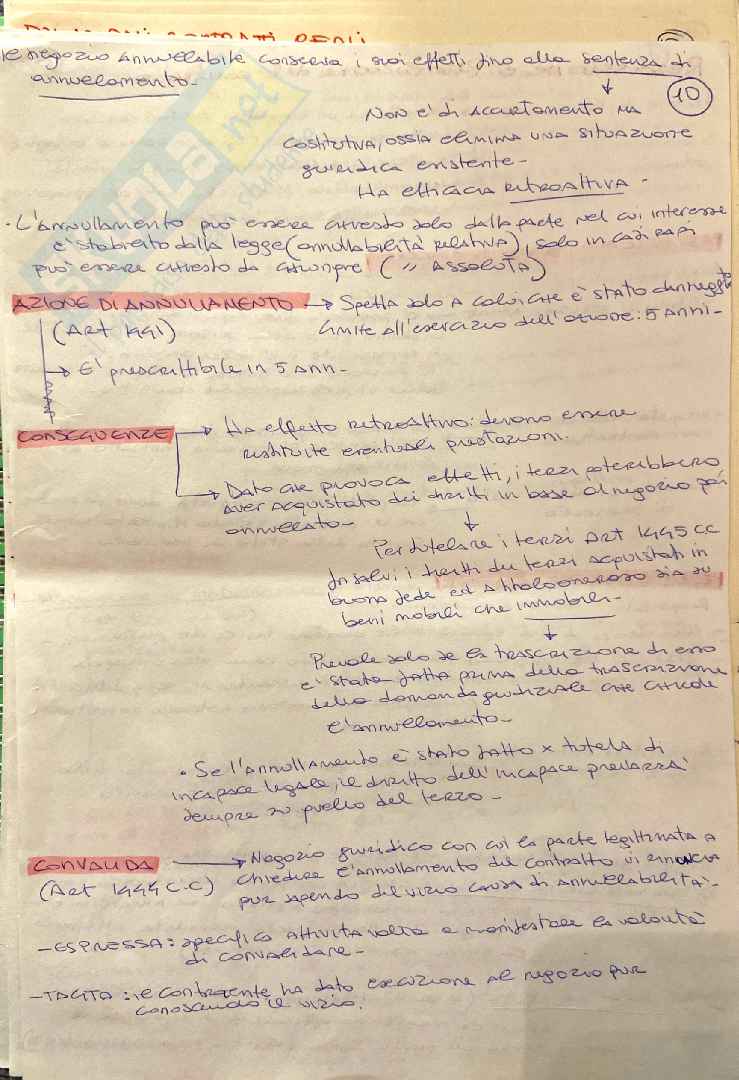 il negozio annullabile conserva i suoi effetti fino alla sentenza di
annullamento-
10
Non è di accertamento ma
costitutiva, ossia elimina una situazione
giuridica esistente-
Ha efficacia retroattiva-
·L'annullamento può essere chiesto solo dalla parte nel cui interesse
è stabilito dalla legge (annullabilità relativa), solo in casi rari
può essere chiesto da chiunque ( " assoluta)
AZIONE DI ANNULLAMENTO → Spetta solo a colui che è stato danneggiato
(Art 1441) limite all'esercizio dell'azione: 5 anni-
→ E' prescrittibile in 5 ann-
CONSEGUENZE → Ha effetto retroattivo: devono essere
restituite eventuali prestazioni.
→ Dato che provoca effetti, i terzi poterebbero
aver acquistato dei diritti in base al negozio poi
annullato-
Per tutelare i terzi Art 1445 cc
fa salvi i diritti dei terzi acquistati in
buona fede ed a titolo oneroso sia su
beni mobili che immobili-
Prevale solo se la trascrizione di esso
è stata fatta prima della trascrizione
della domanda giudiziale che chiede
l'annullamento-
· Se l'annullamento è stato fatto x tutela di
incapace legale, il diritto dell'incapace prevarrà
sempre su quello del terzo-
CONVALIDA → Negozio giuridico con cui la parte legittimata a
(Art 1444 c.c) chiedere l'annullamento del contratto vi rinuncia
pur sapendo del vizio causa di annullabilità-
-ESPRESSA: specifica attività volta a manifestare la volontà
di convalidare-
-TACITA: il contraente ha dato esecuzione al negozio pur
conoscendo il vizio.